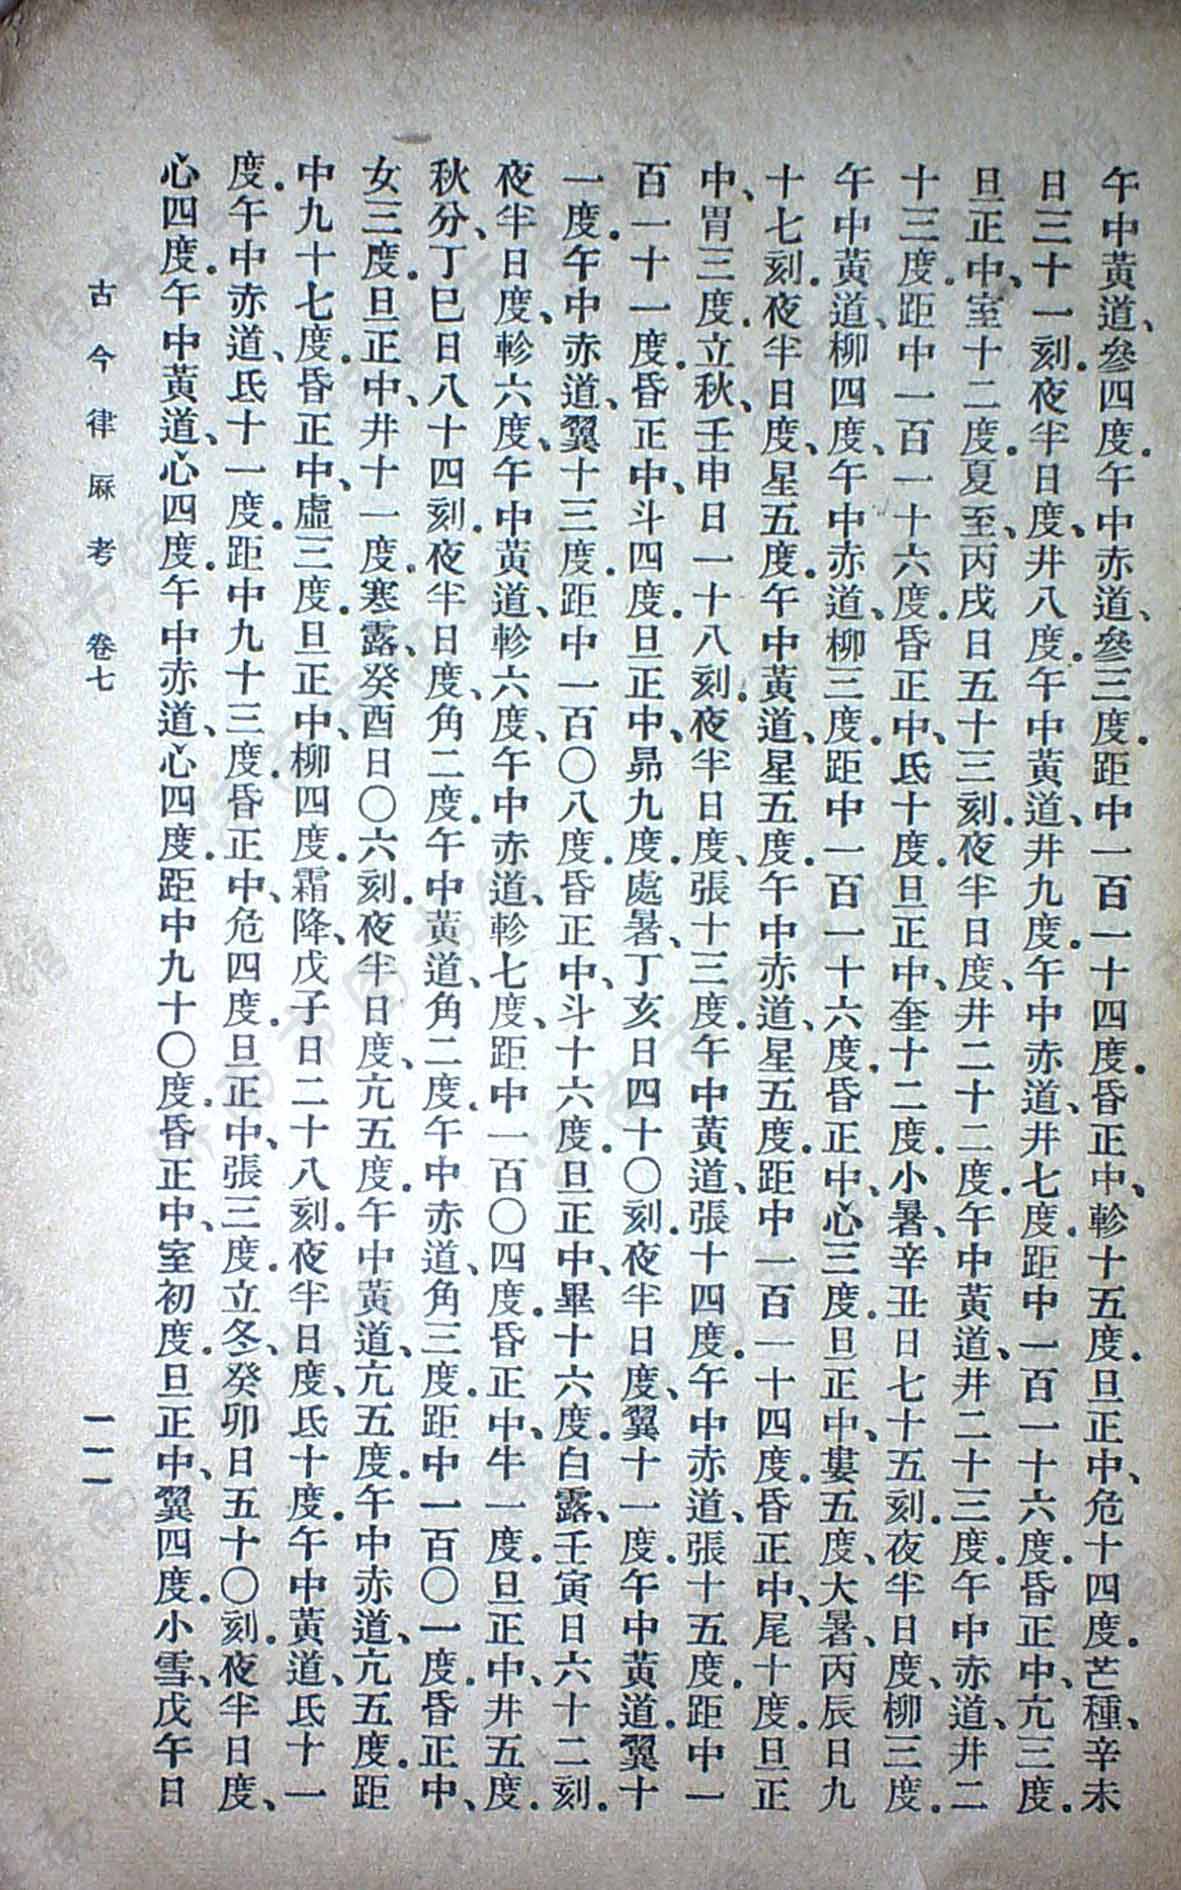 午中黃道、參四度。午中赤道、參三度。距中一百一十四度。昏正中、軫十五度。旦正中、危十四度。芒種、辛未
日三十一刻。夜半日度、井八度。午中黃道、井九度。午中赤道、井七度。距中一百一十六度。昏正中、亢三度。
旦正中、室十二度。夏至、丙戌日五十三刻。夜半日度、井二十二度。午中黃道、井二十三度。午中赤道、井二
十三度。距中一百一十六度。昏正中、氐十度。旦正中、奎十二度。小暑、辛丑日七十五刻。夜半日度、柳三度。
午中黃道、柳四度、午中赤道、柳三度。距中一百一十六度。昏正中、心三度。旦正中、婁五度、大暑、丙辰日九
十七刻。夜半日度、星五度。午中黃道、星五度。午中赤道、星五度。距中一百一十四度。昏正中、尾十度。旦正
中、胃三度。立秋、壬申日一十八刻。夜半日度、張十三度。午中黃道、張十四度。午中赤道、張十五度。距中一
百一十一度。昏正中、斗四度。旦正中、昴九度。處暑、丁亥日四十〇刻。夜半日度、翼十一度。午中黃道。翼十
一度。午中赤道、翼十三度。距中一百〇八度。昏正中、斗十六度。旦正中、畢十六度。白露、壬寅日六十二刻。
夜半日度、軫六度、午中黃道、軫六度、午中赤道、軫七度、距中一百〇四度。昏正中、牛一度。旦正中、井五度。
秋分、丁巳日八十四刻。夜半日度、角二度。午中黃道、角二度。午中赤道、角三度。距中一百〇一度。昏正中、
女三度。旦正中、井十一度。寒露、癸酉日〇六刻。夜半日度、亢五度。午中黃道、亢五度。午中赤道、亢五度。距
中九十七度。昏正中、虛三度。旦正中、柳四度。霜降、戊子日二十八刻。夜半日度、氐十度。午中黃道、氐十一
度。午中赤道、氐十一度。距中九十三度。昏正中、危四度。旦正中、張三度。立冬、癸卯日五十〇刻。夜半日度、
心四度。午中黃道、心四度。午中赤道、心四度。距中九十〇度。昏正中、室初度。旦正中、翼四度。小雪、戊午日
古今律厤考　卷七　一一一